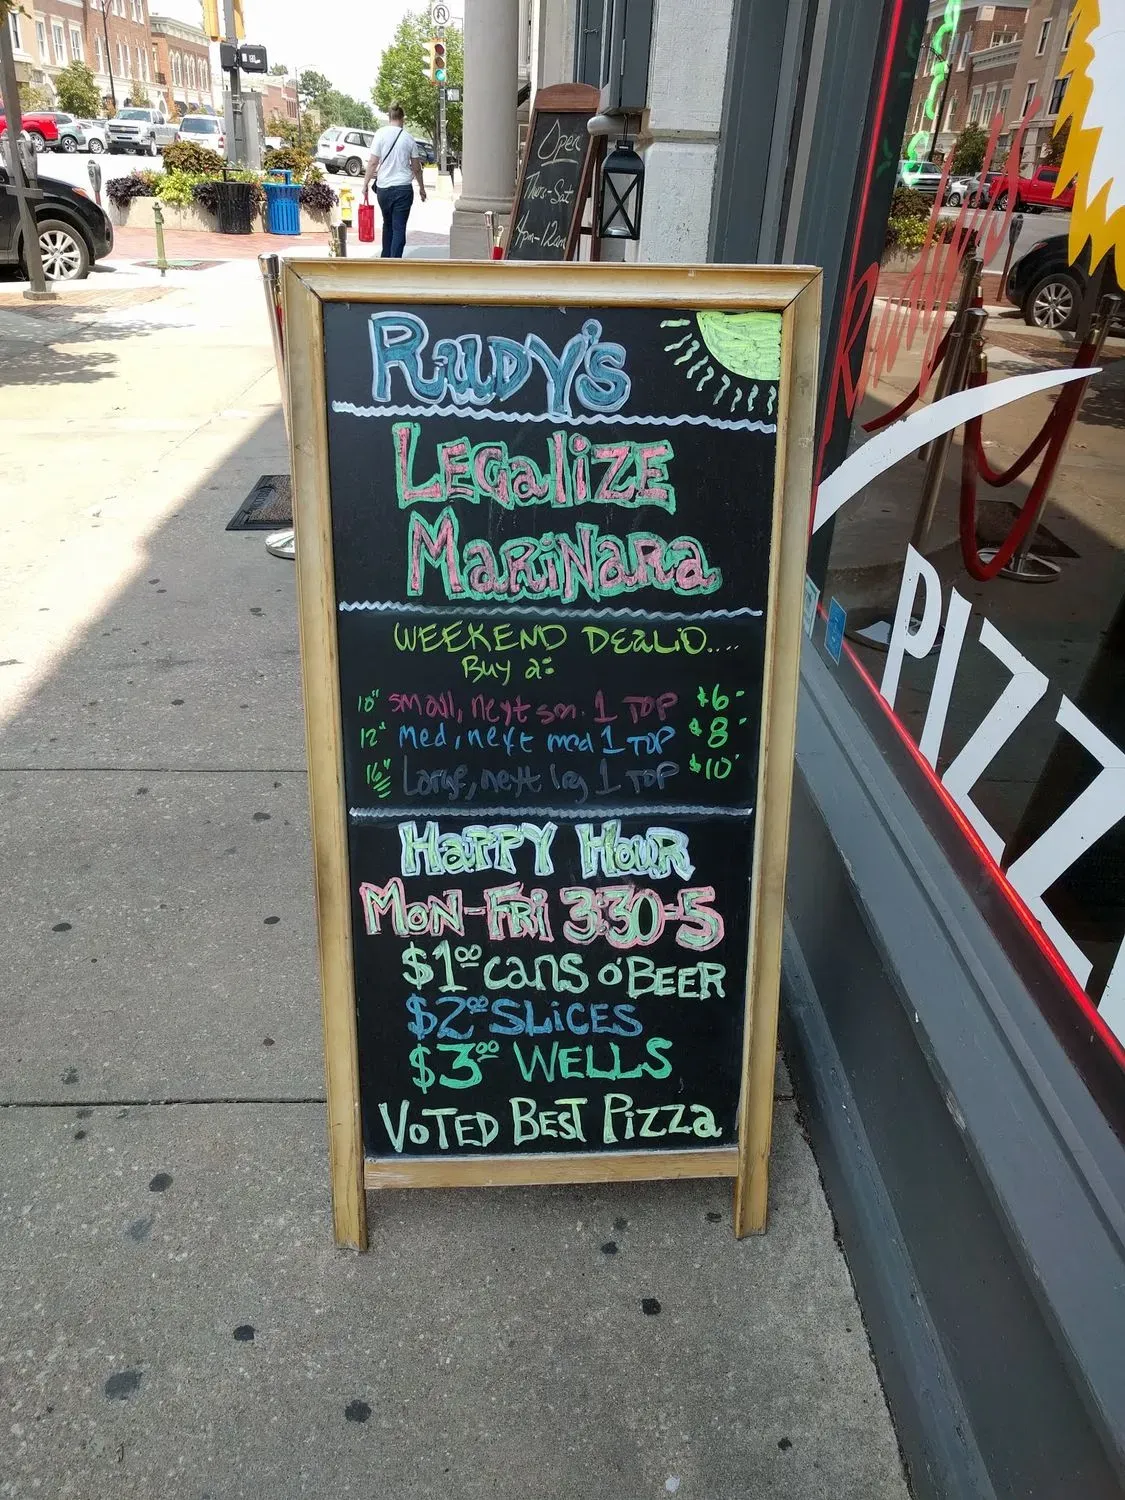 Open
Thurs-Sat
4pm-12am
RUDY'S
LEGalIZE
MaRiNaRa
WEEKEND DEaL'O....
Buy a:
10" small, next sm. 1 TOP $6-
12" med, next med 1 TOP $8-
16" Large, next lg 1 TOP $10-
HaPPY HOUR
MON-FRi 3:30-5
$1.00 CaNS O'BEER
$2.00 SLiCES
$3.00 WELLS
VOTED BEST PiZZa
Rudy's
PIZZ